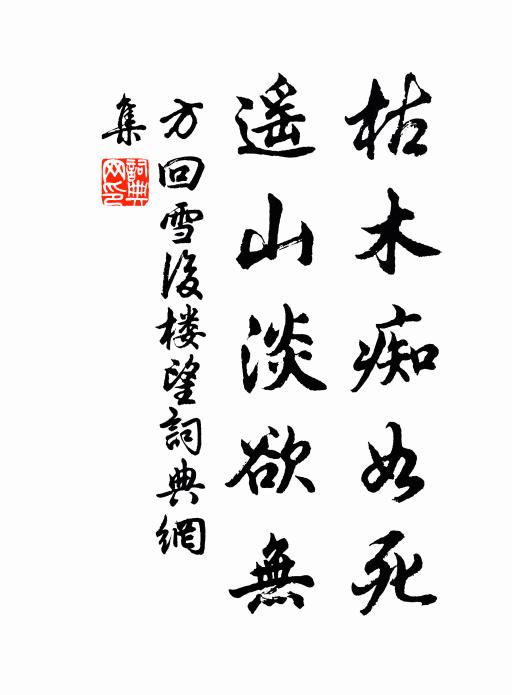 枯木痴如死
遥山淡欲無
方回雪後楼望詞典網
集
詞典
网印